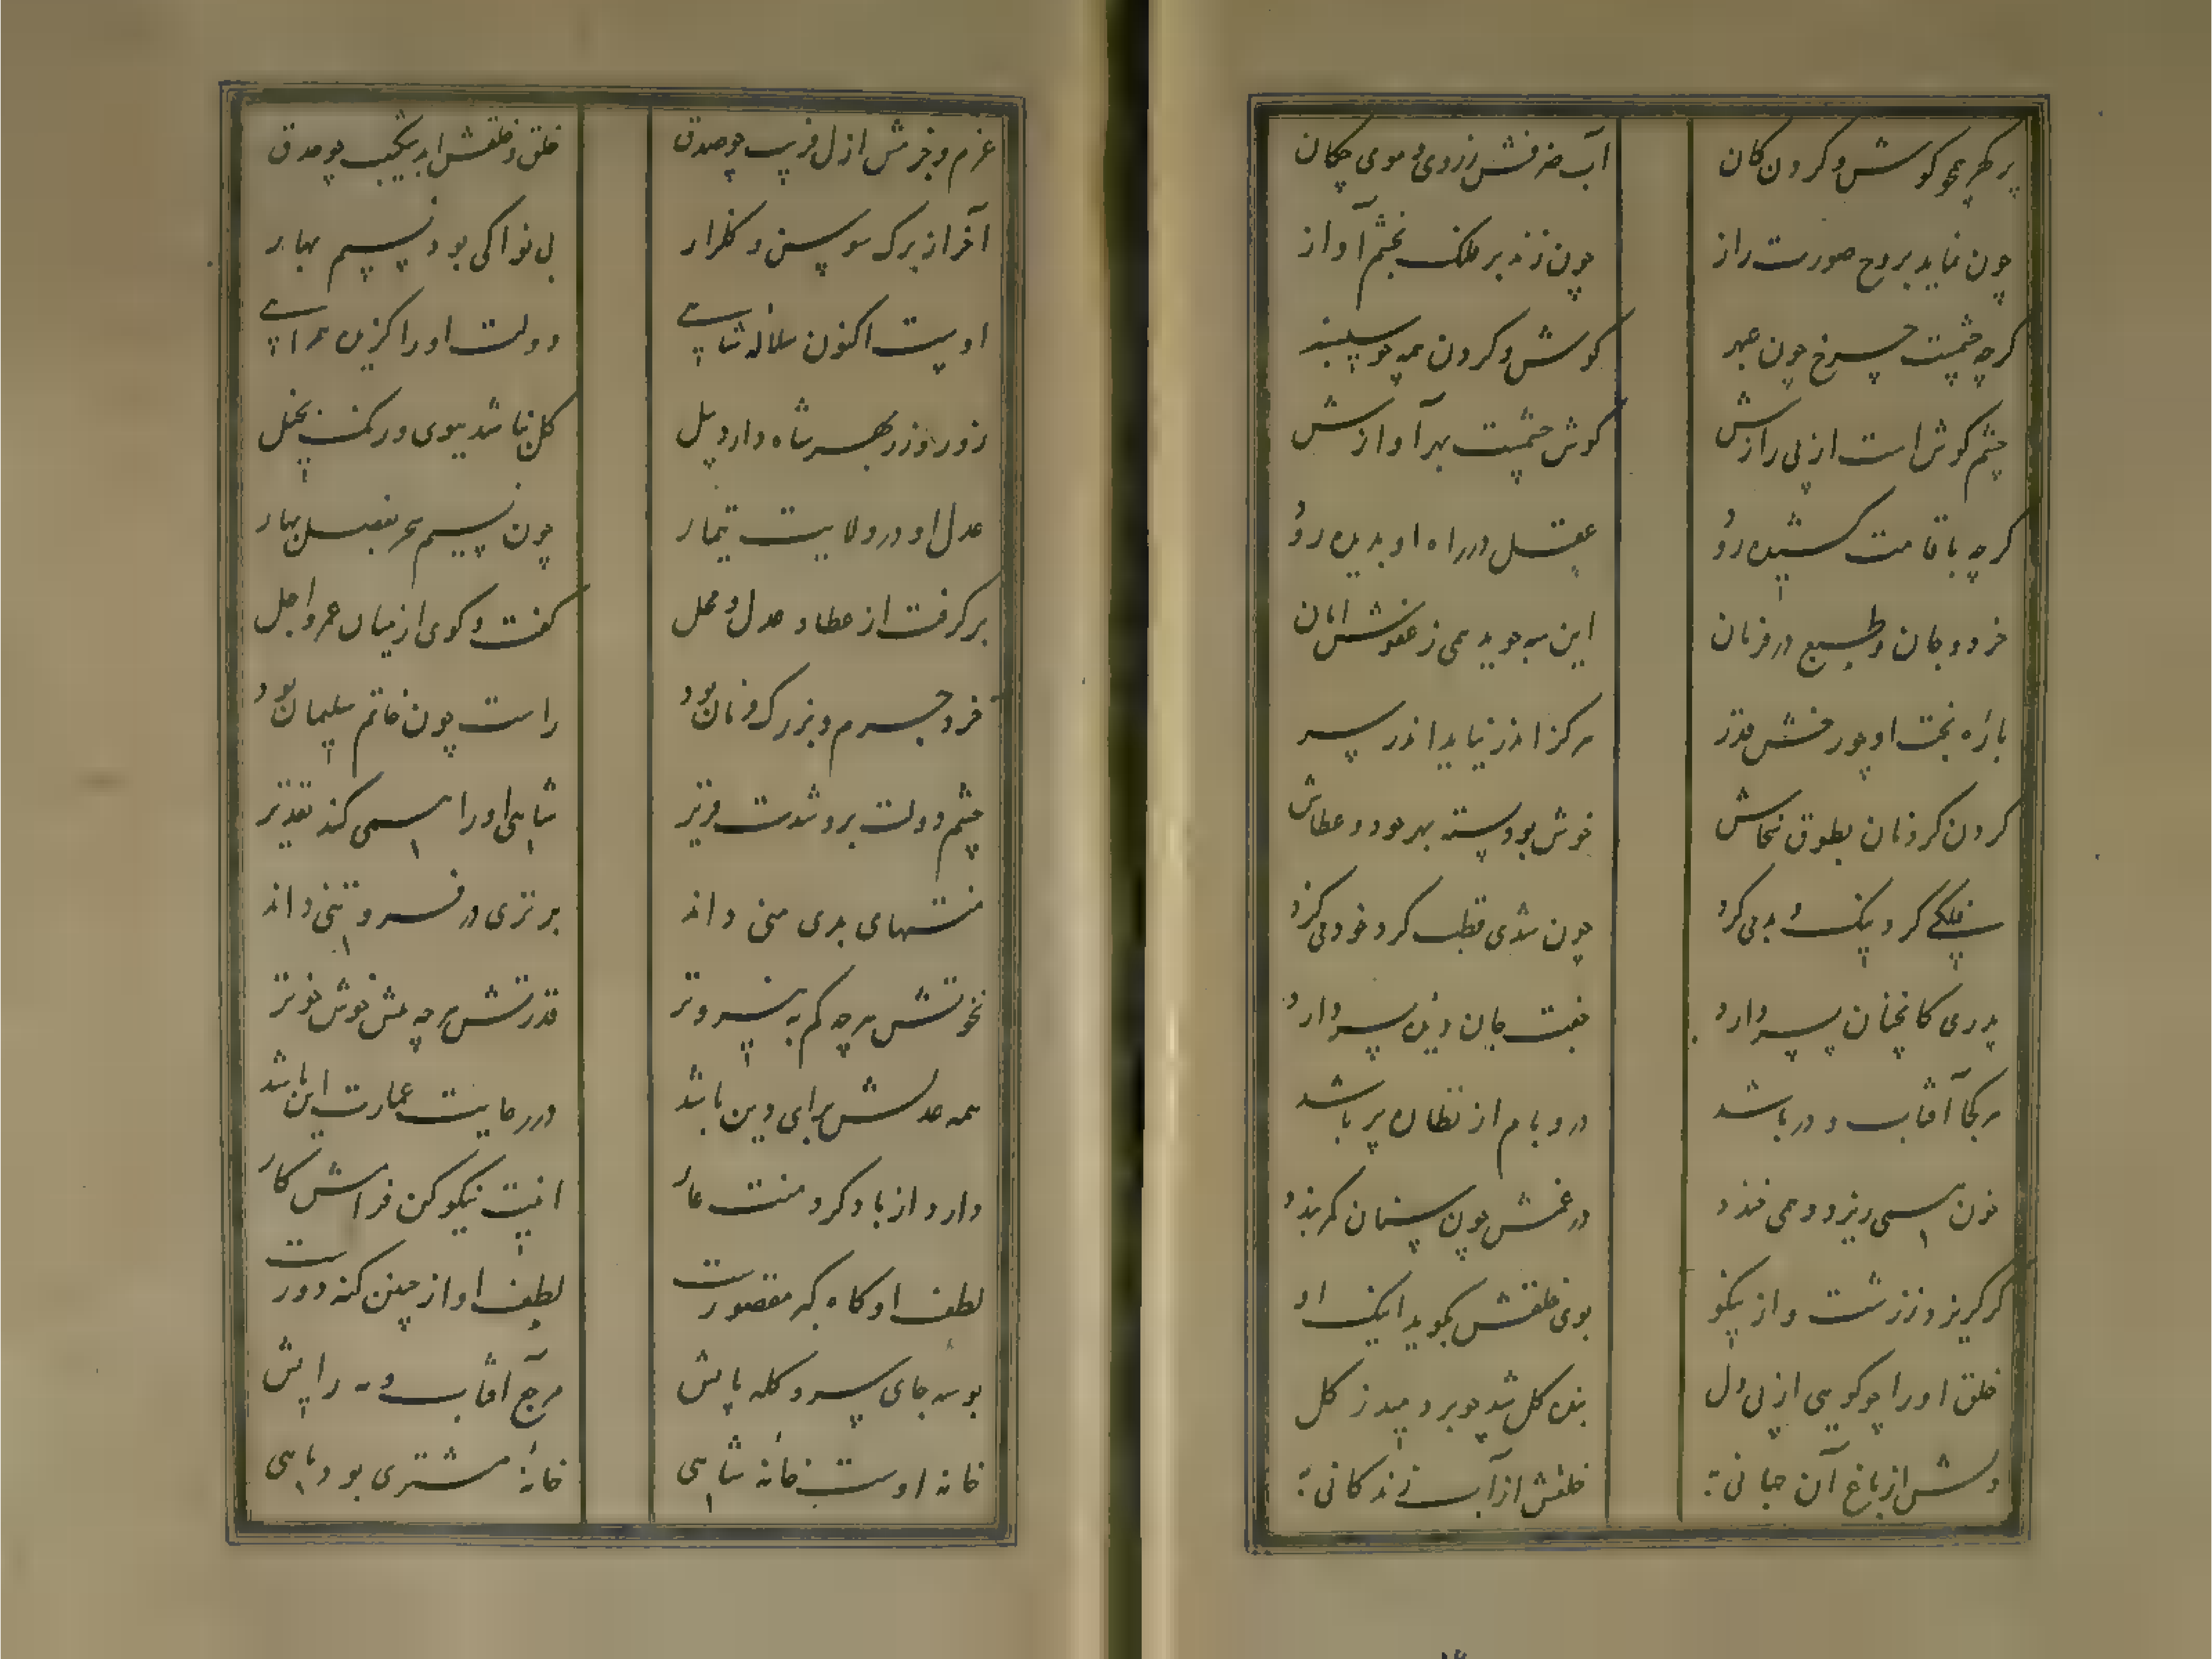 پر گهر همچو گوش و گردن کان
آب حرفش ز روی و موی چکان
چون نماید بروح صورت راز
چون زند بر ملک بخشم آواز
گرچه چشمست چرخ چون عبهر
گوش و گردن همه چو سیسنبر
چشم گوش است از پی رازش
گوش چشمست بهر آوازش
گرچه با قامت کشیده رود
عقل در راه او بدیده رود
خرد و جان و طبع در فرمان
این سه جوید همی ز عفوش امان
باره بخت او چو رخش قدر
هرگز اندر نیاید اندر سر
گردن گردنان بطوق سخاش
خوش بود بسته بهر جود و عطاش
فلکی گرد نیک و بد می گرد
چون شدی قطب گرد خود می گرد
پدری کانچنان پسر دارد
جفت جان و دیده پسر دارد
هر کجا آفتاب و در باشد
در و بام از نظاره پر باشد
خون همی ریزد و همی خندد
در غمش چون سنان کمر بندد
گر گریزد ز زشت و از نیکو
بوی خلقش بگوید اینک او
خلق او را چو گویی از پی دل
بنده گل شد چو برد مید ز گل
دلش از باغ آن جهانی
خلقش از آب زندگانی
عزم و جزمش ازل فریب چو صدق
خلق و خلقش ابد شکیب چو صدق
آخر از برگ سوسن و گلزار
بی نوا کی بود نسیم بهار
اوست اکنون سلاله شاهی
دولت او را گزیده همراهی
زور و زر بهر شاه دارد پیل
گل نباشد ببوی در کف بخیل
عدل او در ولایت تیمار
چون نسیم سحر بفصل بهار
برگرفت از عطا و عدل و عمل
گفت و گوی از میان عمر و اجل
خرد جرم و بزرگ فرمان بود
راست چون خاتم سلیمان بود
چشم دولت بدو شدست قریر
شاهی او را همی کند تقدیر
منتهای بدی سخی داند
برتری در فروتنی داند
نخوتش هر چه کم به نیروتر
قدرتش هر چه بیش خوش خوتر
همه عدلش برای دین باشد
در رعایت عمارت این باشد
دارد از باد کرد منت عار
اینت نیکو کن فرامش کار
لطف او گاه گه مقصورست
لطف او از چنین گنه دورست
بوسه جای سر و کله پایش
برج آفتاب و مه رایش
خانه اوست خانه شاهی
خانهٔ مشتری بود ماهی